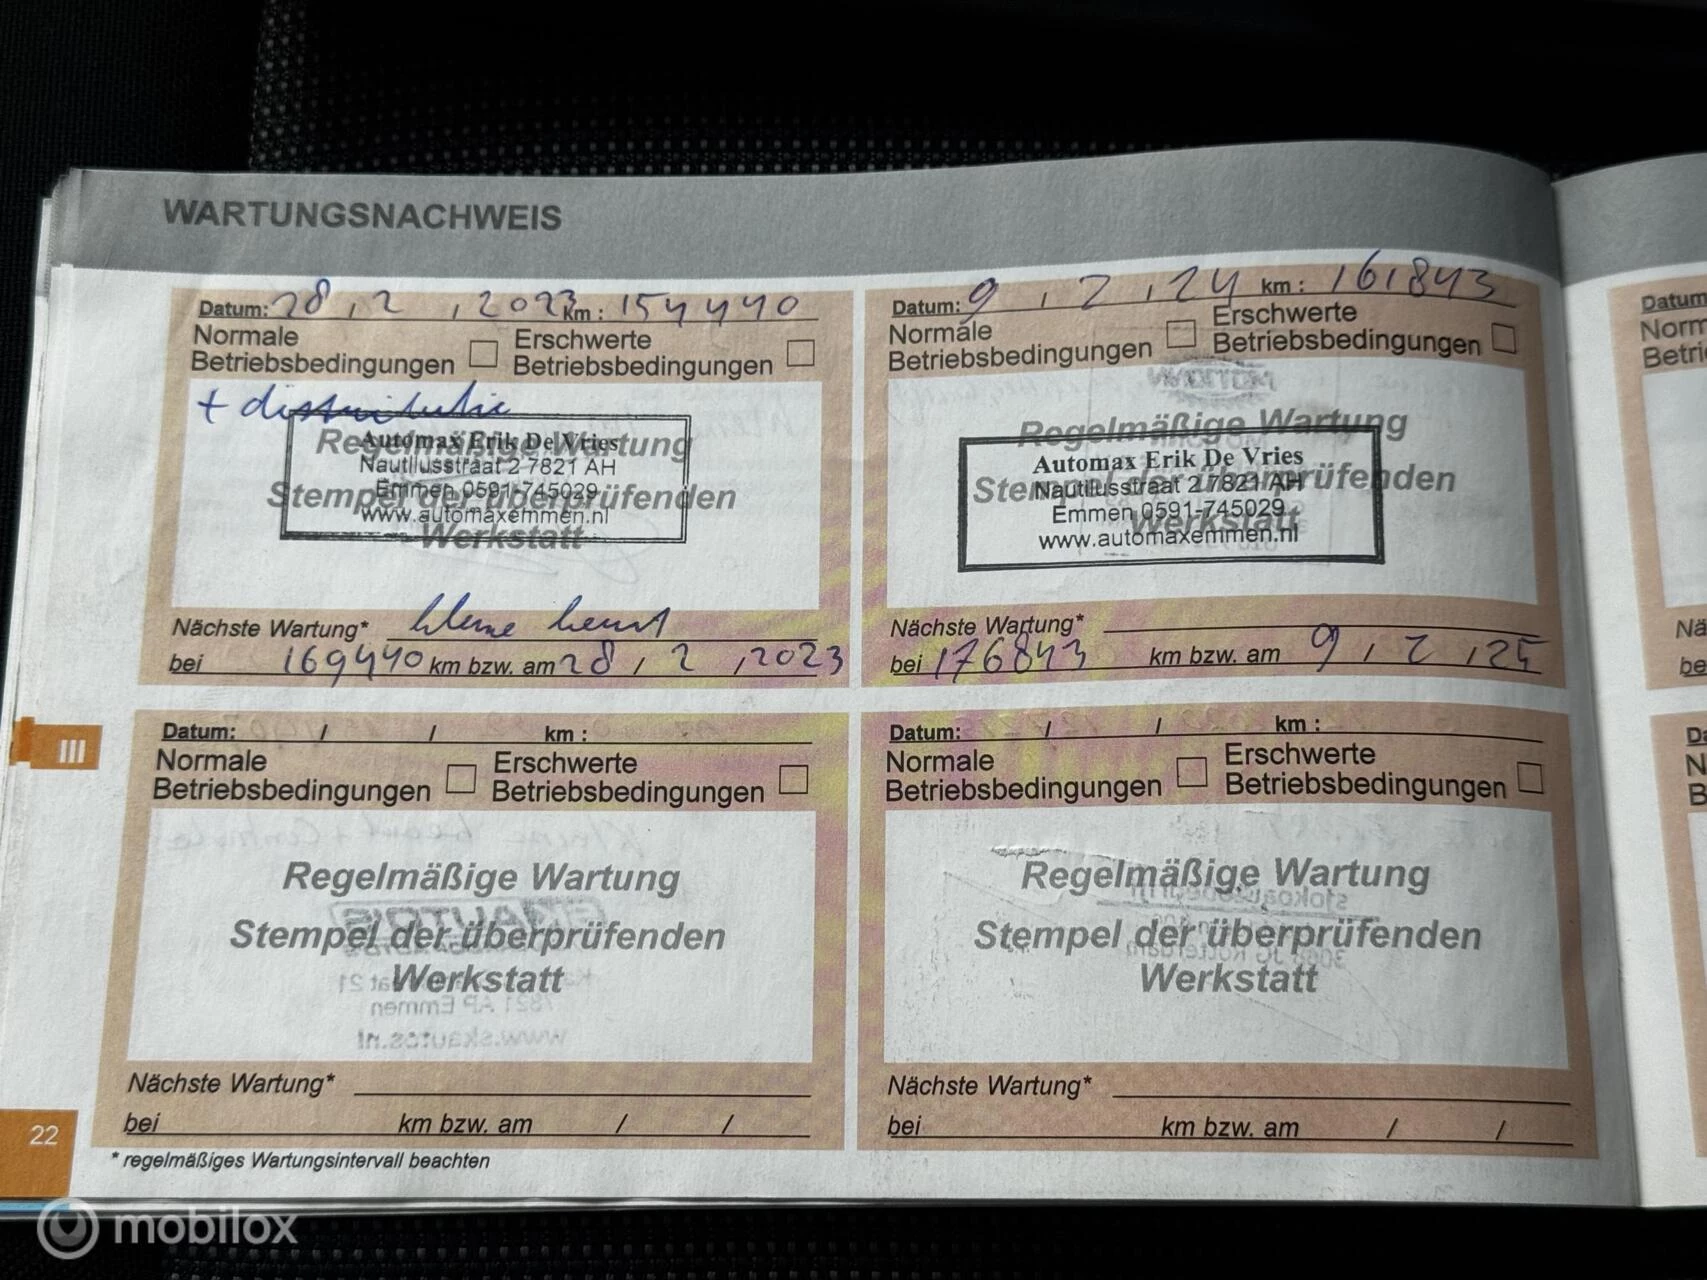 WARTUNGSNACHWEIS
Datum: 28 , 2 , 2023 Km : 154440
Normale Betriebsbedingungen
Erschwerte Betriebsbedingungen
+ distributie
Regelmäßige Wartung
Stempel der überprüfenden
Werkstatt
Automax Erik De Vries
Nautilusstraat 2 7821 AH
Emmen 0591-745029
www.automaxemmen.nl
Nächste Wartung* kleine beurt
bei 169440 km bzw. am 28 , 2 , 2023
Datum: 9 , 2 , 24 km : 161843
Normale Betriebsbedingungen
Erschwerte Betriebsbedingungen
Regelmäßige Wartung
Stempel der überprüfenden
Werkstatt
Automax Erik De Vries
Nautilusstraat 2 7821 AH
Emmen 0591-745029
www.automaxemmen.nl
Nächste Wartung*
bei 176843 km bzw. am 9 , 2 , 25
III
Datum: / / km :
Normale Betriebsbedingungen
Erschwerte Betriebsbedingungen
Regelmäßige Wartung
Stempel der überprüfenden
Werkstatt
Nächste Wartung*
bei km bzw. am / /
Datum: / / km :
Normale Betriebsbedingungen
Erschwerte Betriebsbedingungen
Regelmäßige Wartung
Stempel der überprüfenden
Werkstatt
Nächste Wartung*
bei km bzw. am / /
22
* regelmäßiges Wartungsintervall beachten
mobilox